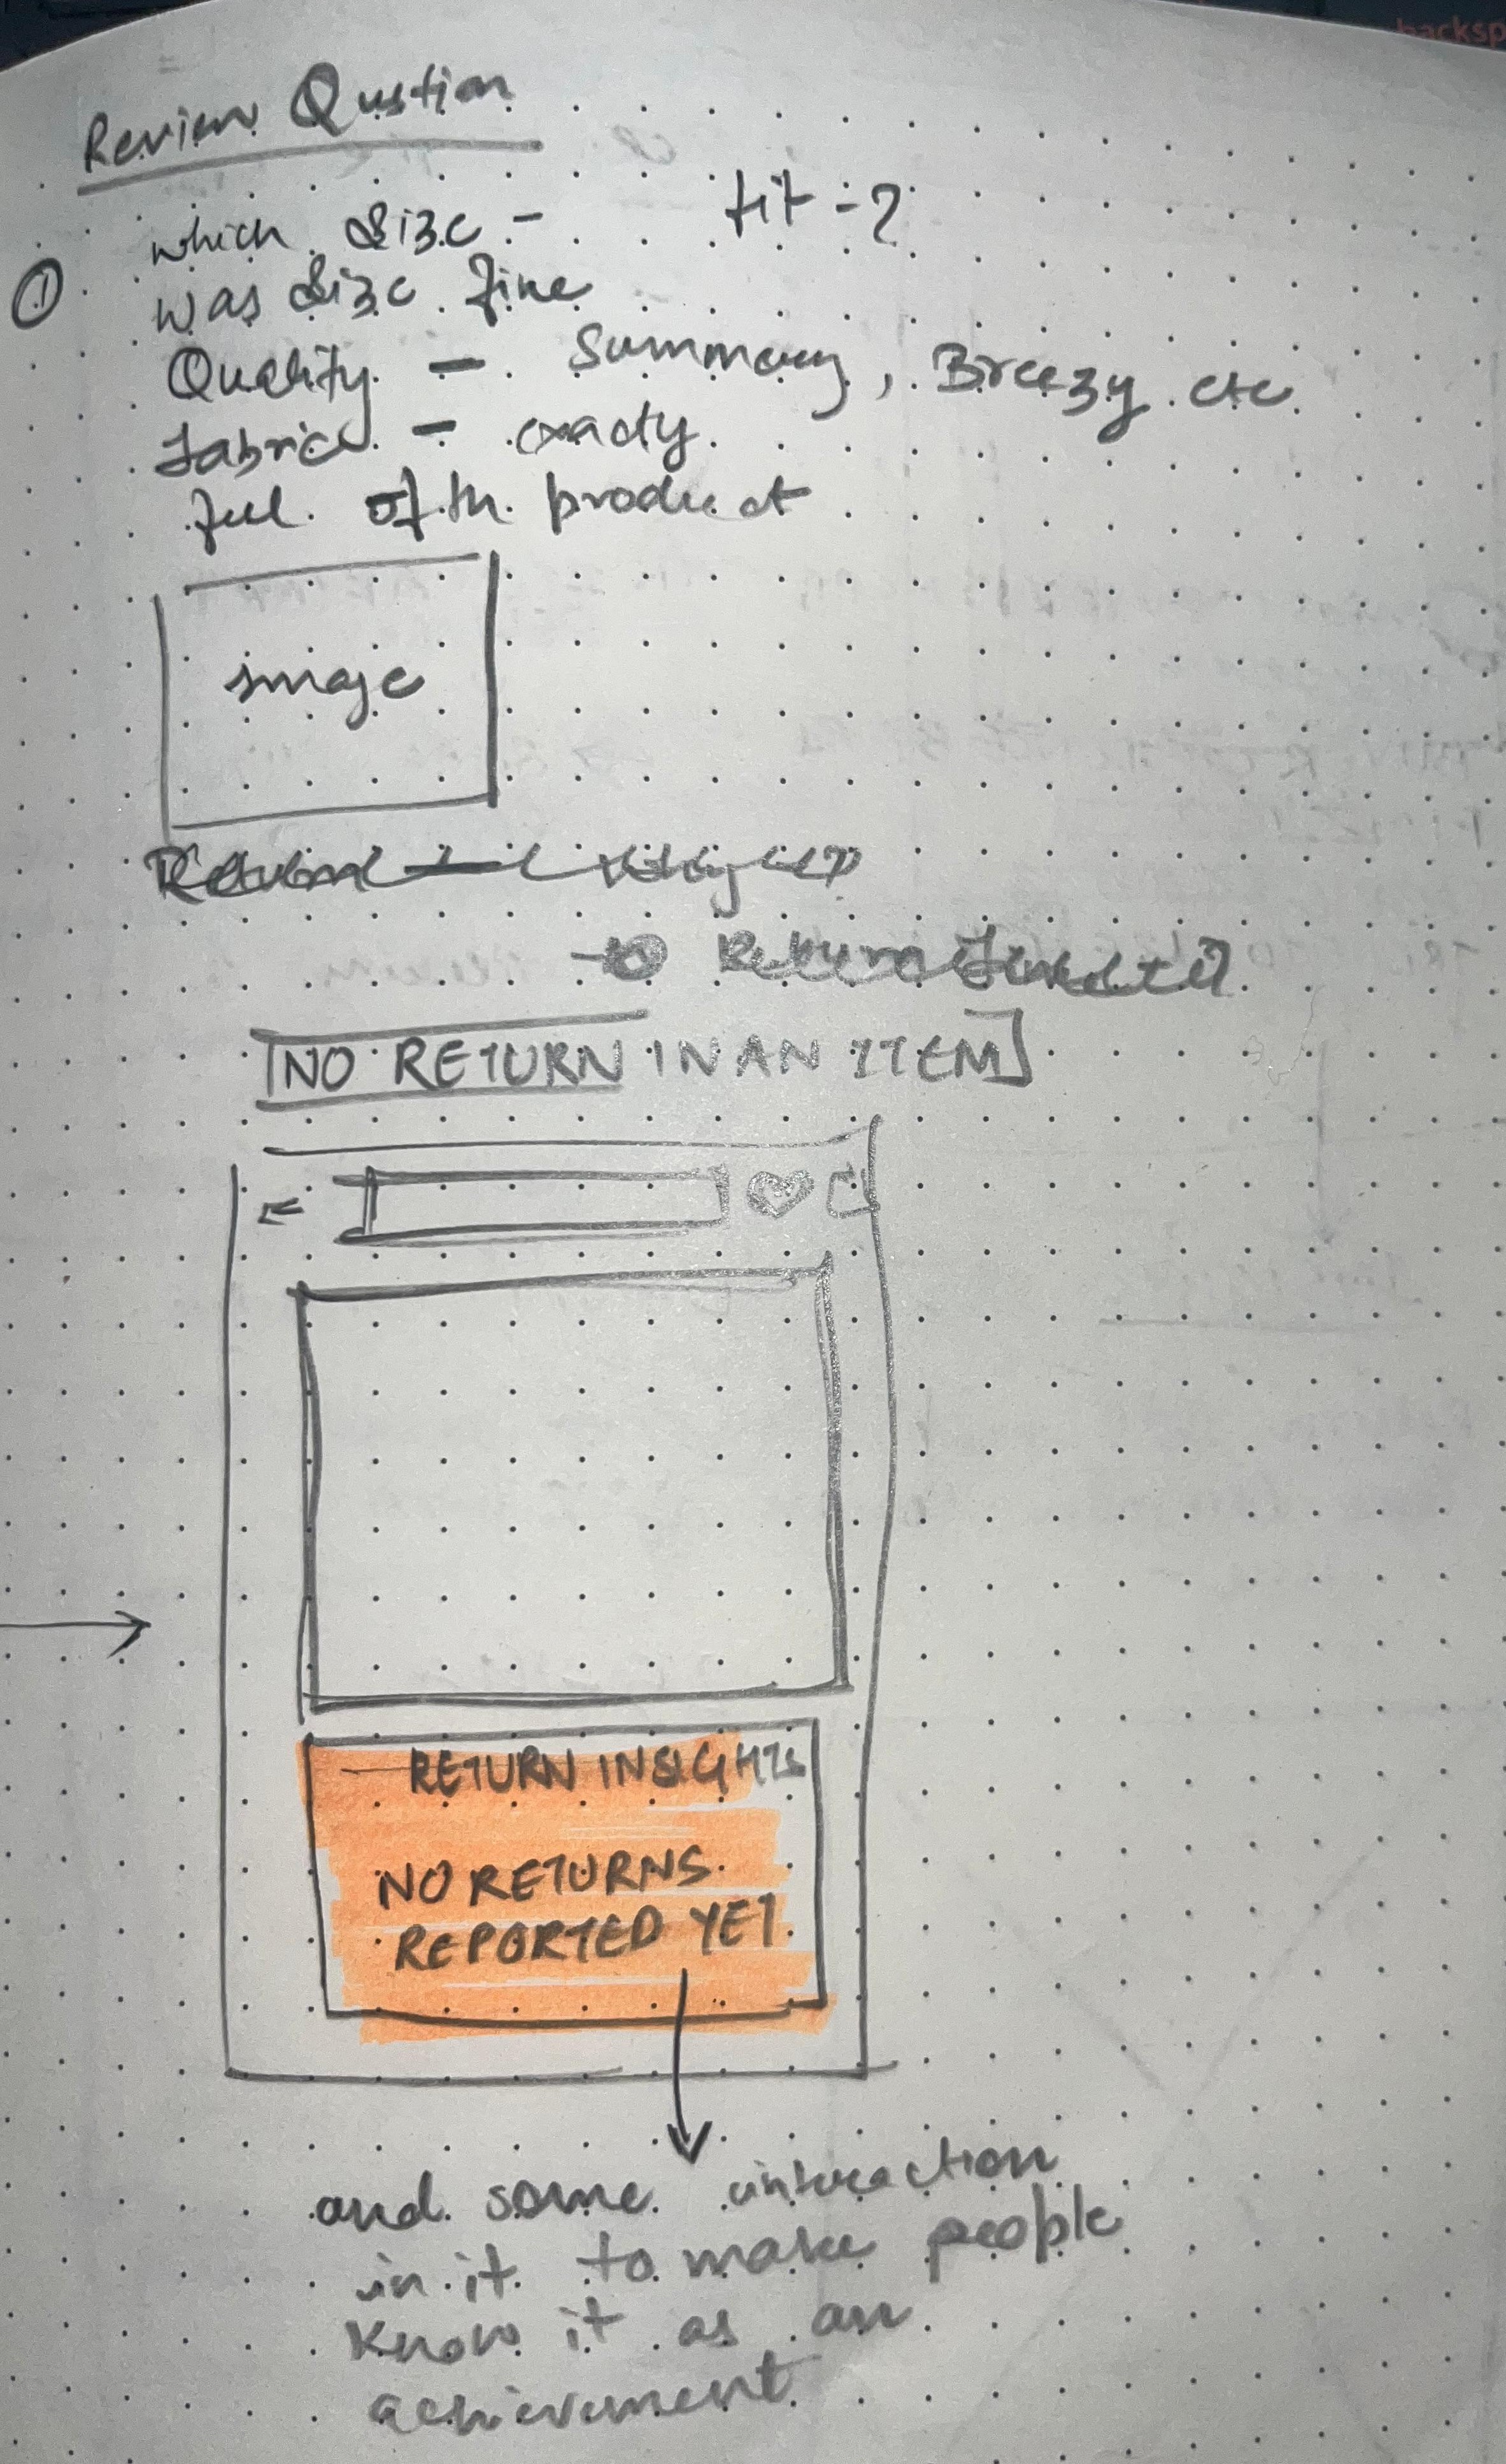 Review Qustion
which size - fit - ?
① was size fine
Quality - Summary, Breezy etc
fabric - exacty
feel of th product
image
→ Return
[NO RETURN IN AN ITEM]
RETURN INSIGHTS
NO RETURNS.
REPORTED YET
and some interaction
in it to make people
know it as an
achievement